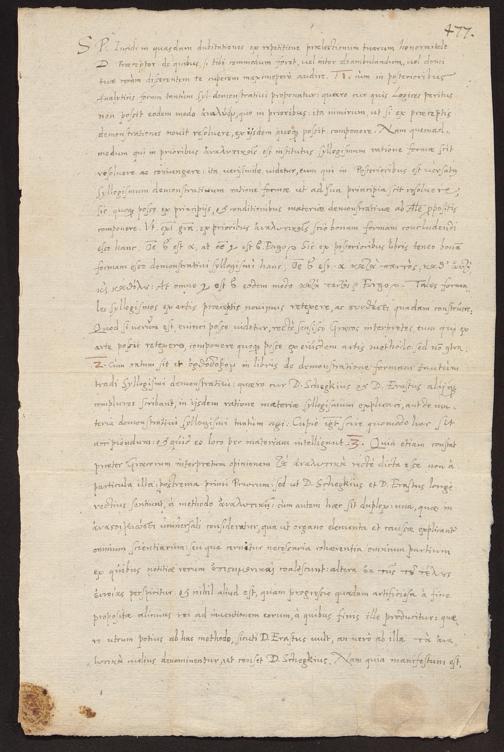 477.
S. P. Incidi in quasdam dubitationes ex repetitione praelectionum tuarum honorande
D. Praeceptor de quibus, si tibi commodum foret, vel inter deambulandum, vel domi
tuae coram disserentem te cuperem maximopere audire. cum in posterioribus
Analyticis forma tantum syl. demonstrativi proponatur: quaero cur quis Logices peritus
non possit eodem modo quo in prioribus: ita nimirum, ut si ex praeceptis
demonstrationes novit resolvere, ex iisdem quoque possit componere. Nam quemad-
modum qui in prioribus ἀναλυτικοῖς est institutus syllogismum ratione formae scit
resolvere ac coniungere: ita verisimile videtur, eum qui in Posterioribus est versatus
syllogismum demonstrativum ratione formae ut ad sua principia scit resolvere,
sic quoque posse ex principiis, et conditionibus materiae demonstrativae ab propositis
componere. Ut exempli gratia ex prioribus ἀναλυτικοῖς scio bonam formam concludendi
esse hanc. β est α, at γ est β. Ergo. Sic ex posterioribus libris teneo bonam
formam esse demonstrativi syllogismi hanc: β est α κατὰ παντὸς, καθ᾽ αὑτὸ
καὶ καθόλου: At omne γ est β eodem modo Ergo. Tales forma-
les syllogismos ex artis praeceptis novimus retexere, ac quadam construere.
Quod si verum est, evinci posse videtur, recte sensisse Graecos interpretes eum qui ex
arte possit retexere, componere quoque posse ex eiusdem artis methodo: sed
2. Cum ratum sit et in libris de demonstratione formam tantum
tradi syllogismi demonstrativi: quaero cur D. Schegkius et D. Erastus aliique
complures scribant, in iisdem ratione materiae syllogismum explicari, aut de ma-
teria demonstrativi syllogismi tantum agi. Cupio scire quomodo haec sit
accipiendum: et quid eo loco per materiam intelligant. 3. Quia etiam constat
praeter Graecorum interpretum opinionem ἀναλυτικὰ recte dicta esse non à
particula illa: postrema primi Priorum: sed ut D. Schegkius et D. Erastus longe
rectius sentiunt, à methodo ἀναλυτικῇ: cum autem haec sit duplex: una, quae in
universali consideratur, qua ut organo elementa et causae explicantur
omnium scientiarum: seu qua cernitur necessaria cohaerentia omnium partium
ex quibus notitiae rerum ἐπιστημονικαὶ coalescunt: altera ἐκ τοῦ τέλους
ἐννοίας perspicitur, et nihil aliud est, quam progressio quaedam artificiosa à fine
propositae alicuius rei ad inventionem eorum, à quibus finis ille producitur: quae-
ro utrum potius ab hac methodo, sicuti D. Erastus vult, an vero ab illa τὰ ἀνα-
λυτικὰ melius denominentur, ut censet D. Schegkius. Nam quia manifestum est,